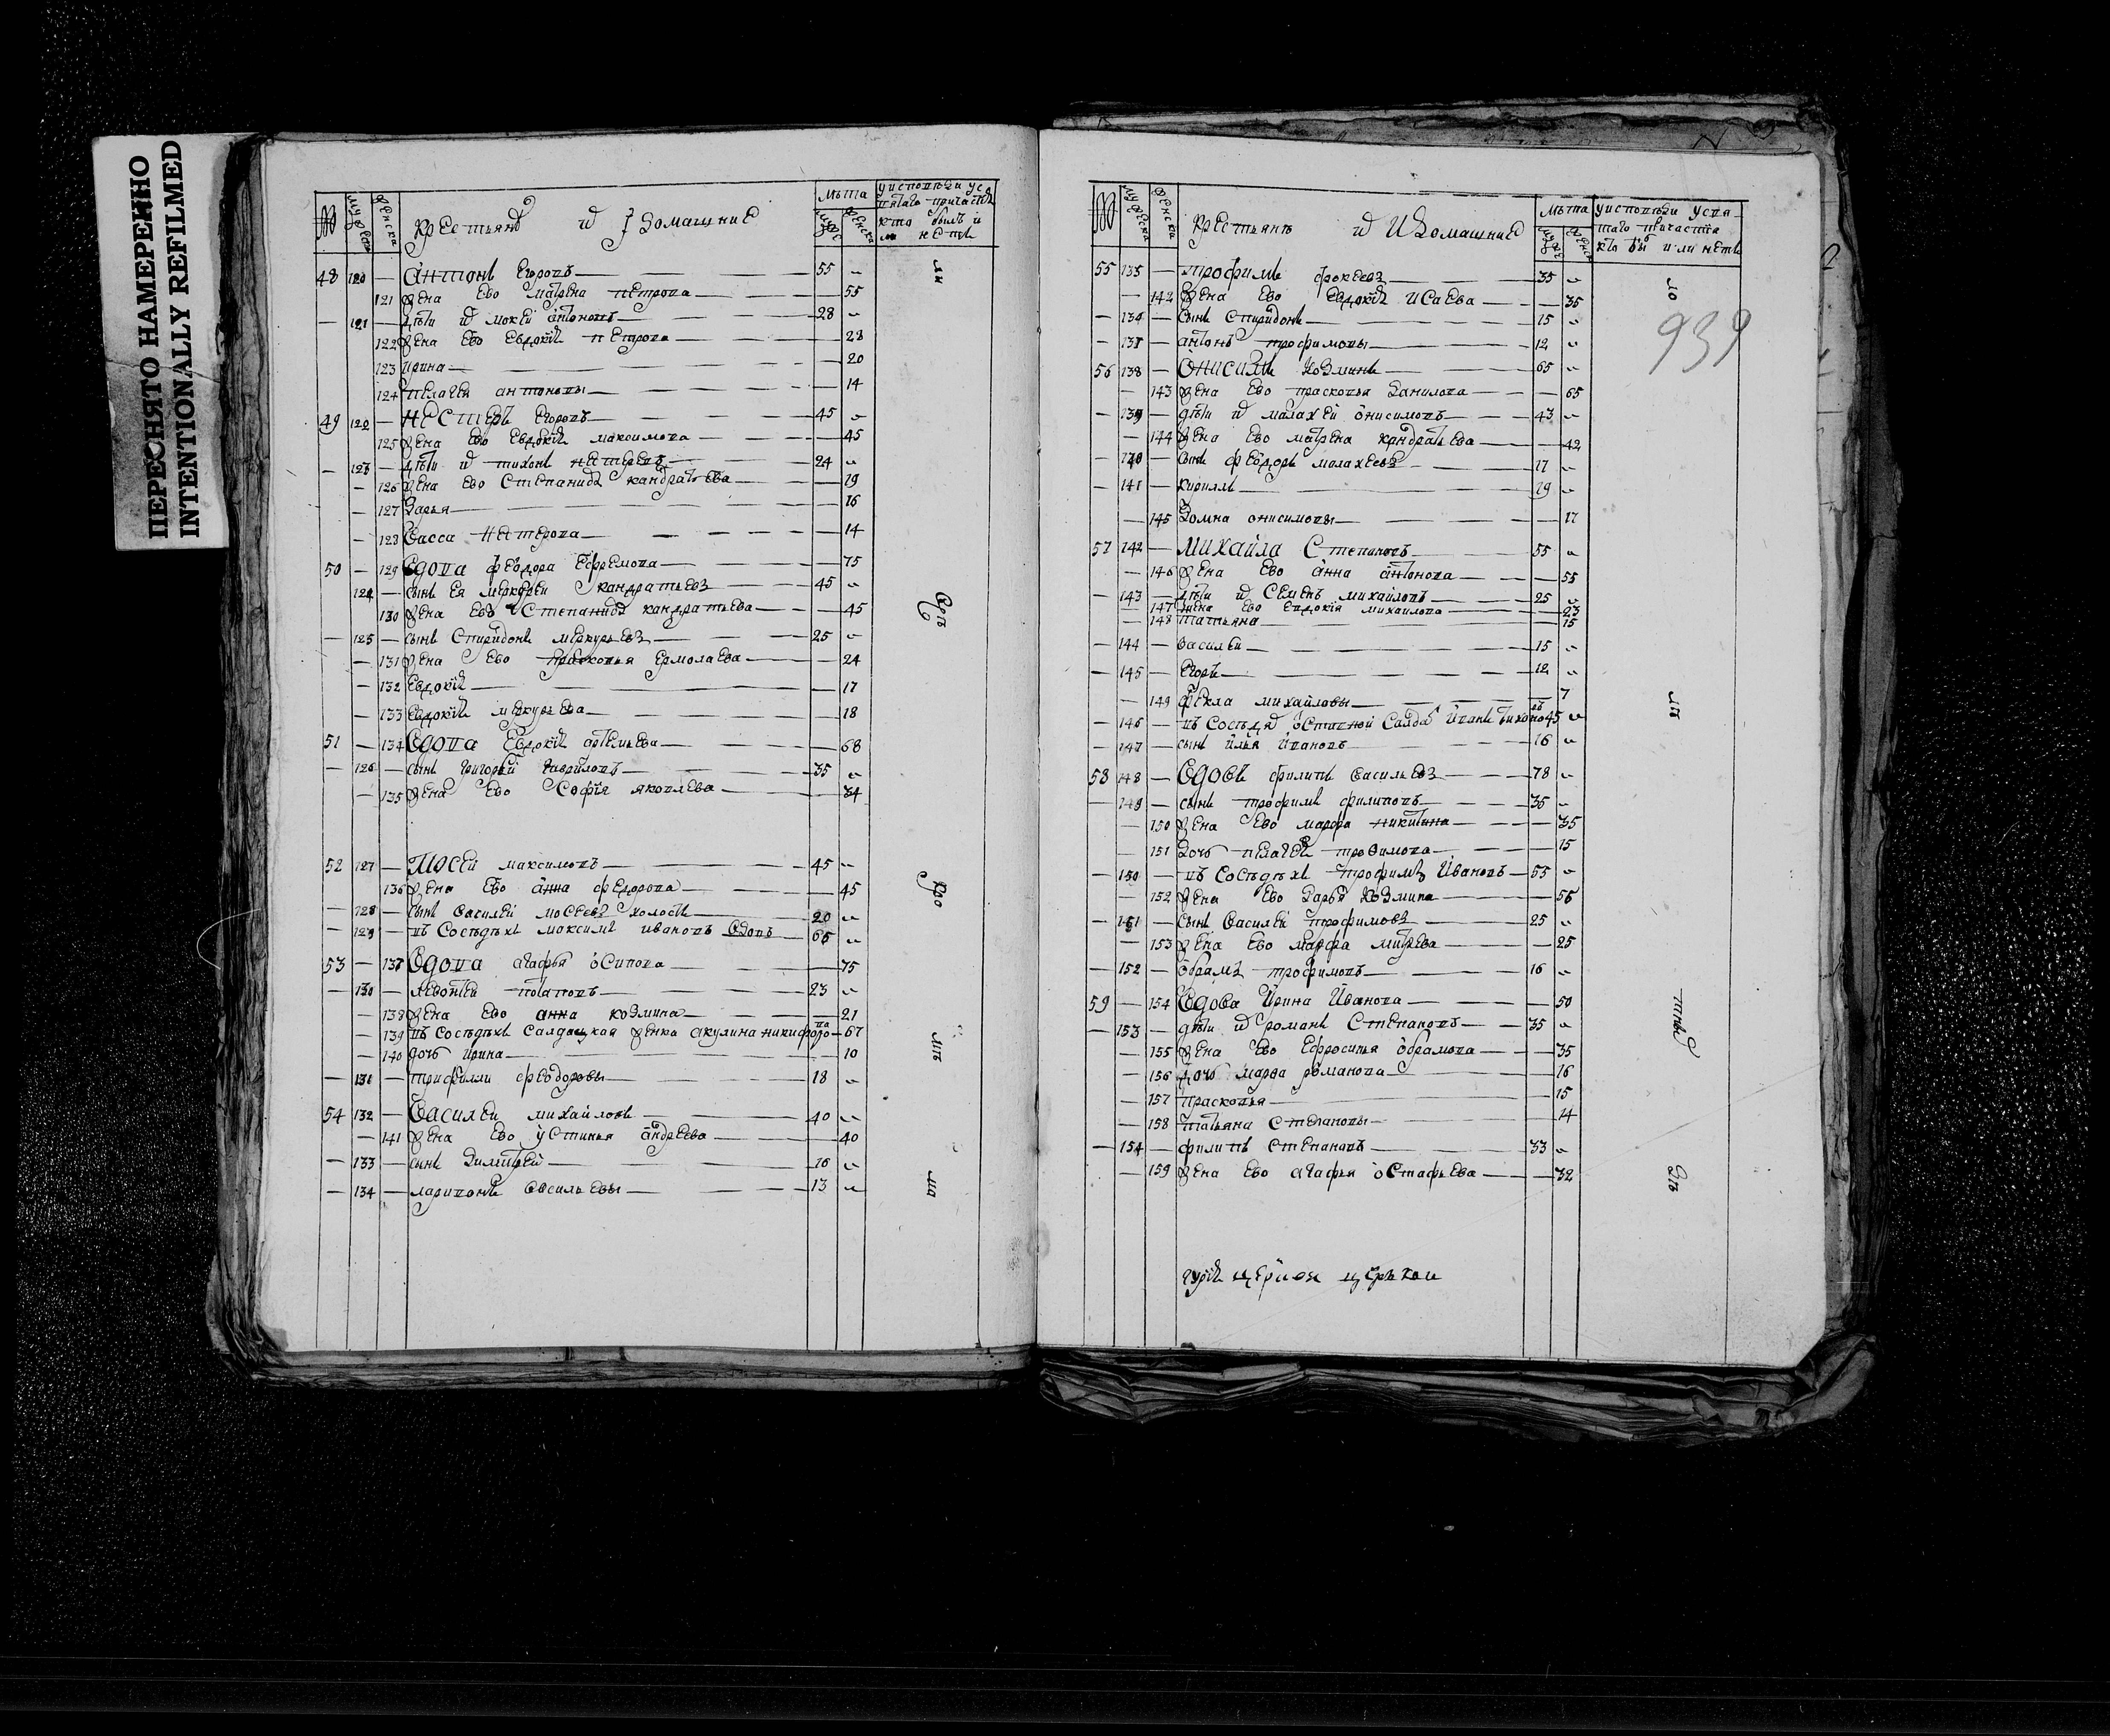 ПЕРЕСНЯТО НАМЕРЕННО
INTENTIONALLY REFILMED
крестьянѣ и домашние лѣта
кто былъ и
48 120 — антонъ егоровъ — 55 „
121 жена ево матрена петрова — 55
— 121 — дѣти и мокей антоновъ — 28 „
122 жена ево евдокия петрова — 28
123 ирина — 20
124 пелагея антоновы — 14
49 122 — нестеръ егоровъ — 45 „
125 жена ево евдокия максимова — 45
— 123 — дѣти и тихонъ нестеревъ — 24 „
— 126 жена ево степанида кандратьева — 19
— 127 дарья — 16
— 128 васса нестерова — 14
50 — 129 вдова федора ефремова — 75
124 — сынъ ея меркурей кандратьевъ — 45 „
130 жена ево степанида кандратьева — 45
— 125 — сынъ спиридонъ меркурьевъ — 25 „
— 131 жена ево прасковья ермолаева — 24
— 132 евдокия — 17
— 133 евдокия меркурьева — 18
51 — 134 вдова евдокия артемьева — 68
— 126 — сынъ григорей гавриловъ — 35 „
— 135 жена ево софья яковлева — 34
52 127 — мосей максимовъ — 45 „
136 жена ево анна федорова — 45
— 128 — сынъ василей мосеевъ холостъ — 20 „
— 129 — въ сосѣдѣхъ максимъ ивановъ вдовъ — 65 „
53 — 137 вдова агафья осипова — 75
— 130 — левонтей потаповъ — 23 „
— 138 жена ево анна козмина — 21
— 139 въ сосѣдѣхъ салдацкая женка акулина никифорова — 67
— 140 дочь ирина — 10
— 131 — трифилли федоровы — 18 „
54 132 — василеи михайловъ — 40 „
— 141 жена ево устинья андреева — 40
— 133 — сынъ димитрей — 16 „
— 134 — ларивонъ васильевы — 13 „
крестьянъ и домашние лѣта уисповѣди
кто был или нетъ
939
55 135 — трофимъ фокеевъ — 35 „
— 142 жена ево евдокия исаева — 35
— 134 — сынъ спиридонъ — 15 „
— 137 — антонъ трофимовы — 12 „
56 138 — онисимъ козминъ — 65 „
— 143 жена ево прасковья данилова — 65
— 139 — дѣти и малахей онисимовъ — 43 „
— 144 жена ево матрена кандратьева — 42
— 140 — сынъ федоръ малахеевъ — 17 „
— 141 — кириллъ — 19 „
— 145 домна онисимовы — 17
57 142 — михайла степановъ — 55 „
— 146 жена ево анна антонова — 55
— 143 — дѣти и семенъ михайловъ — 25 „
— 147 жена ево евдокия михайлова — 23
— 148 татьяна — 15
— 144 — василеи — 15 „
— 145 — егоръ — 12 „
— 149 фекла михайловы — 7
— 146 — въ сосѣдя отставной салдатъ иванъ тихоновъ 45 „
— 147 — сынъ илья ивановъ — 16 „
58 148 — вдовъ филипъ васильевъ — 78 „
— 149 — сынъ трофимъ филиповъ — 35 „
— 150 жена ево марфа никитина — 35
— 151 дочь пелагея трофимова — 15
— 150 — въ сосѣдѣхъ трофимъ ивановъ — 55 „
— 152 жена ево дарья козмина — 56
— 151 — сынъ василей трофимовъ — 25 „
— 153 жена ево марфа митрева — 25
— 152 — обрамъ трофимовъ — 16 „
59 — 154 вдова ирина иванова — 50
— 153 — дѣти и романъ степановъ — 35 „
— 155 жена ево ефросинья обрамова — 35
— 156 дочь марфа романова — 16
— 157 прасковья — 15
— 158 татьяна степановы — 14
— 154 — филипъ степановъ — 33 „
— 159 жена ево агафья остафьева — 32